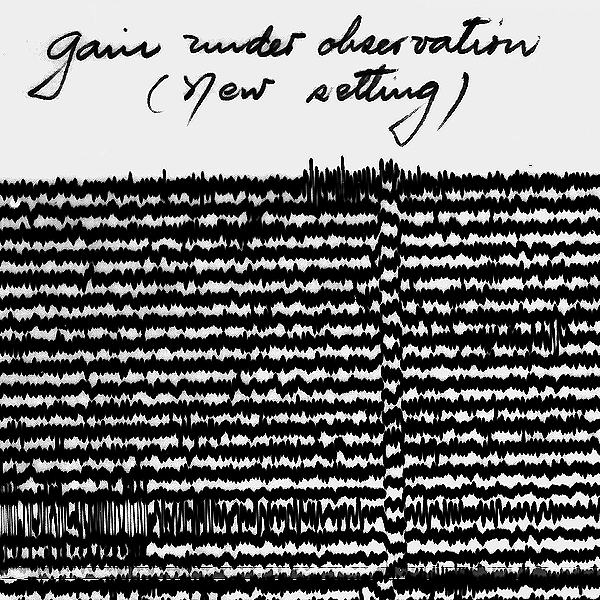 gain under observation
(New setting)